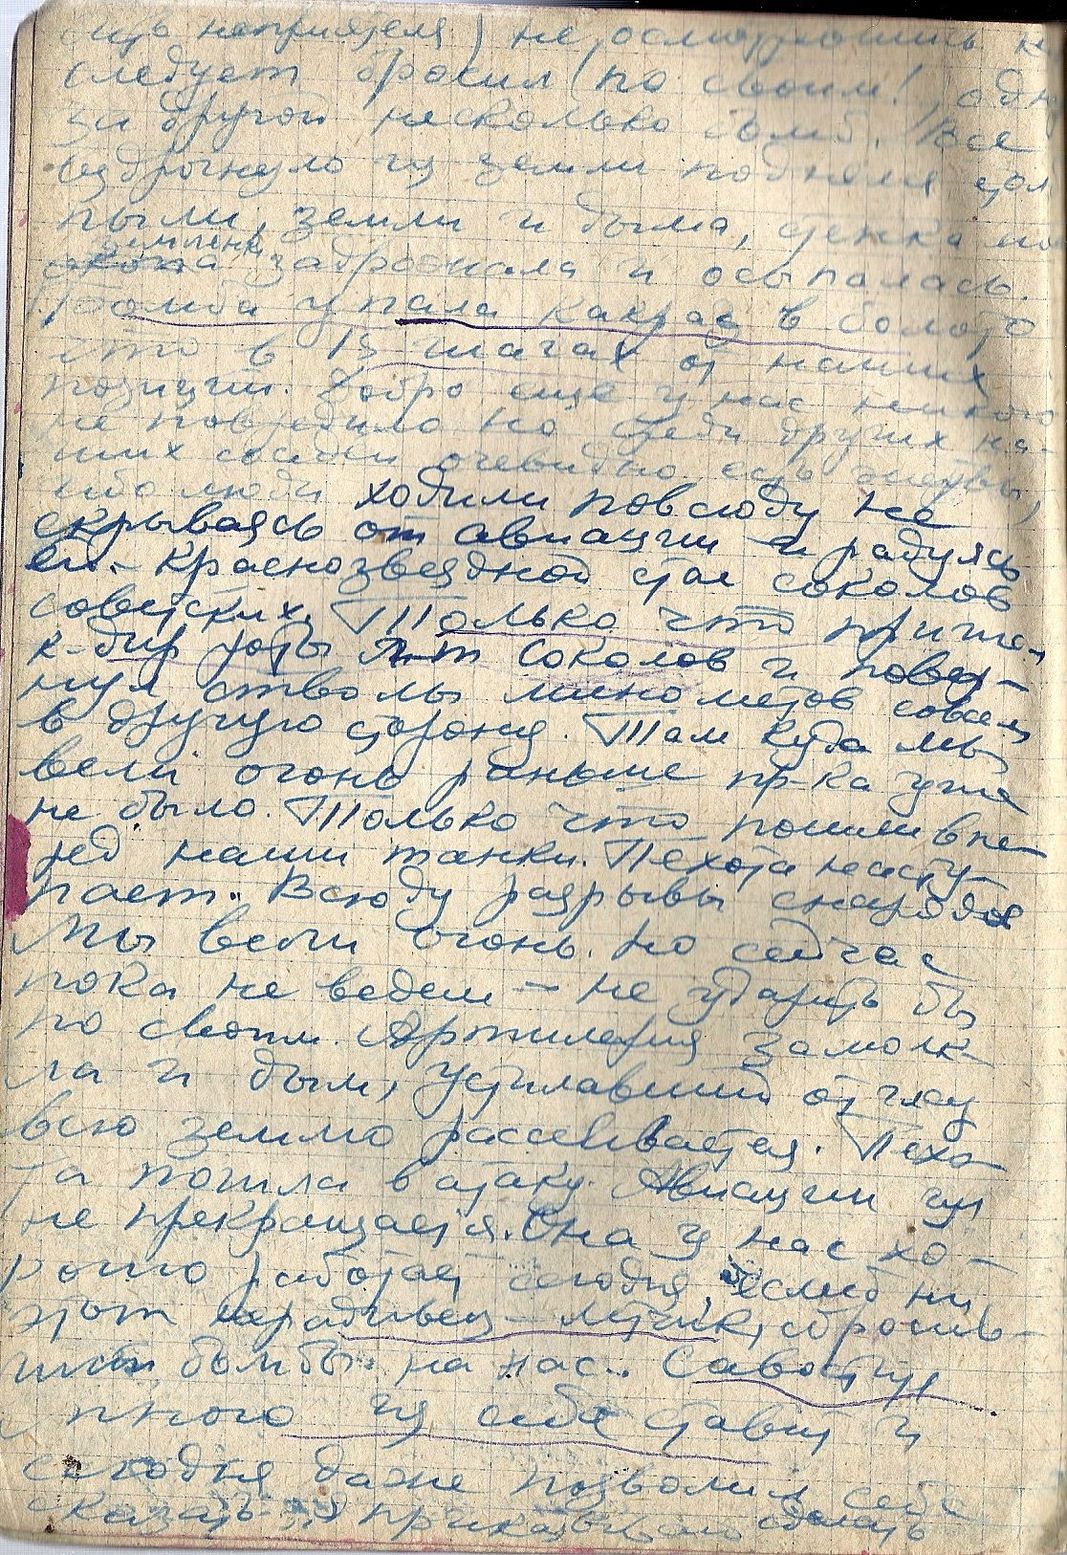 неприятеля) не осмотревшись к
следует бросил (по своим!) одну
за другой несколько бомб. Все
вздрогнуло из земли поднялся
пыли, земли и дыма, стенка
землянки задрожала и осыпалась.
Бомба упала как раз в болото
что в 15 шагах от наших
позиций. Добро еще у нас никого
не повредило но среди других на-
ших очевидно есть жертвы,
ибо люди ходили повсюду не
скрываясь от авиации и радуясь
ей - краснозвездной стае соколов
советских. Только что прише
к-дир роты соколов и повер-
нул стволы минометов совсем
в другую сторону. Там куда мы
вели огонь раньше пр-ка уже
не было. Только что пошли впе-
ред наши танки. Пехота насту-
пает. Всюду разрывы снарядов
Мы вели огонь. Но сейчас
пока не ведем - не ударить бы
по своим. Артилерия замолк-
ла и дым, устилавший от глаз
всю землю рассеивается. Пехо-
та пошла в атаку. Авиации гул
не прекращается. Она у нас хо-
рошо работает сегодня, еслиб ни
этот нерадивец - летчик, сбросив-
ший бомбы на нас.
много из себя ставит и
сегодня даже позволил себе
сказать: Я приказываю сделать